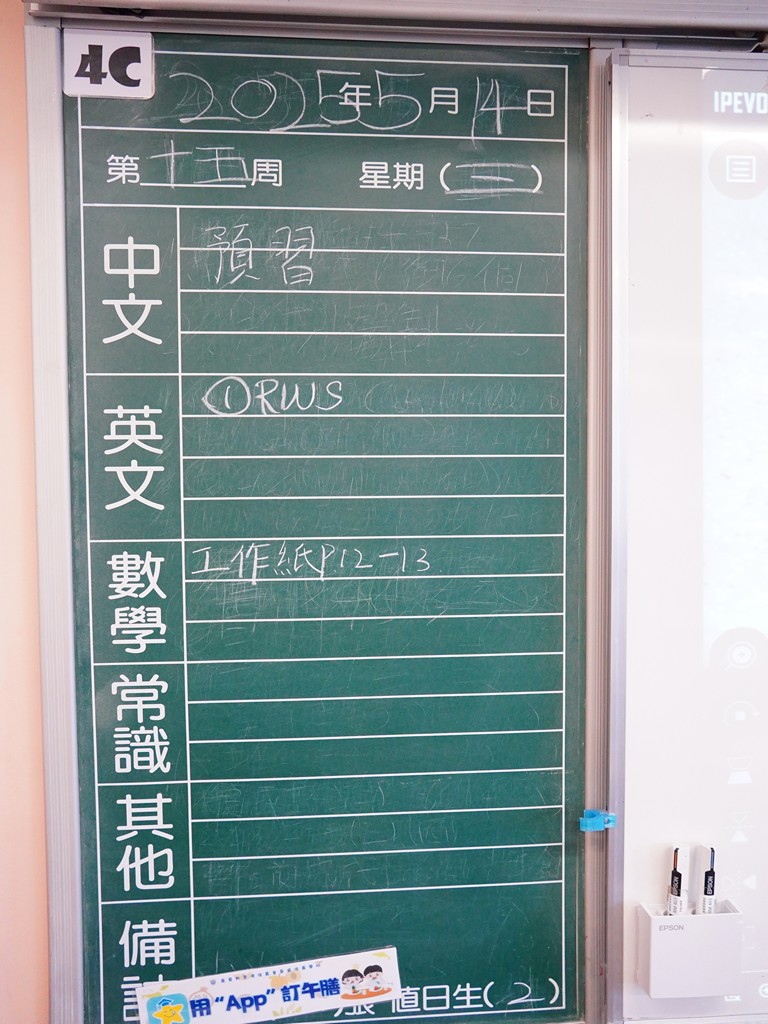 4C
2025年5月14日
第十五周 星期(三)
中文 預習
英文 ①RWS
數學 工作紙P12-13
常識
其他
備
用“App”訂午膳
值日生(2)
IPEVO
EPSON
EPSON
EPSON